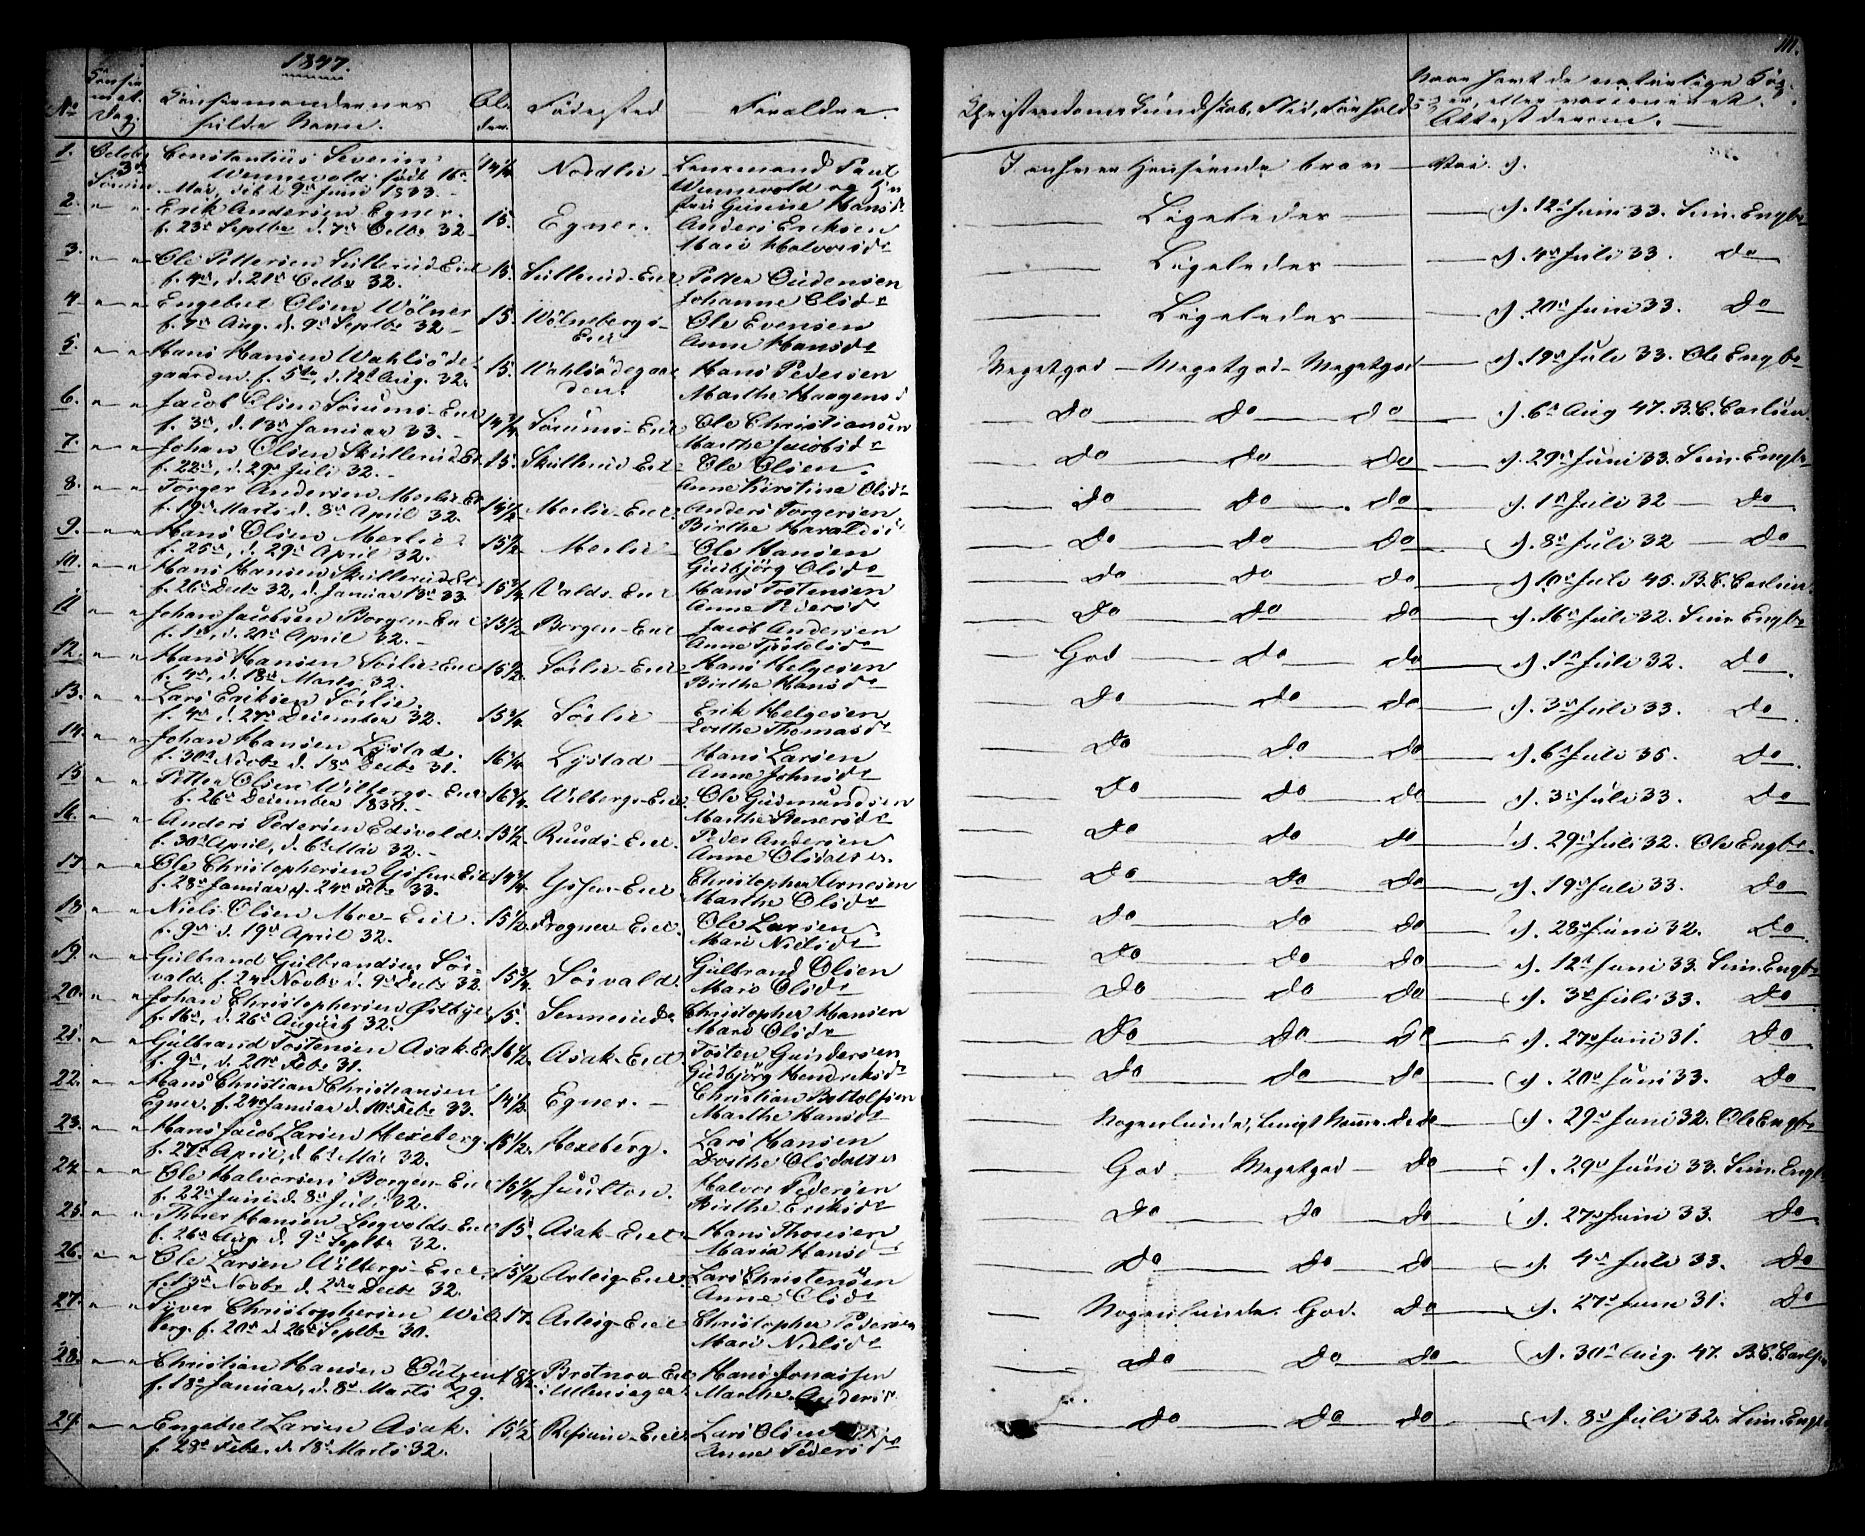 111.
1847.
No Confirmat. Dag. Confirmandernes fulde Navne. Alder. Fødested Forældre. Christendoms Kundskab, Flid, Forhold
Naar havt de naturlige Kopper, eller vaccineret. Attest derom.
1. October 3die Constantius Severin Wennevold født 16de Mai, døbt 9de Juni 1833. 14 1/4 Nordlie Lensmand Paul Wennevold og Hustru Gunine Hansdr I enhver Henseende brav
2. " " Erik Andersen Egner. f. 23de Septbr d. 7de Octbr 32. 15. Egner. Anders Eriksen Mari Halvorsdr Ligeledes v. 12te Juni 33. Sim. Engbr
3. " " Ole Pettersen f. 4de, d. 21de Octbr 32. 15. Petter Gudensen Johanne Olsdr Ligeledes v. 4de Juli 33. Do
4. " " Engebret Olsen Wölner f. 7de Aug. d. 9de Septbr 32. 15. Wölnebergs-Eiet Ole Evensen Anne Hansdr Ligeledes v. 20de Juni 33. Do
5. " " Hans Hansen gaarden. f. 5te, d. 12te Aug. 32. 15. Hans Pedersen Marthe Haagensd Megetgod Megetgod Megetgod v. 19de Juli 33. Ole Engbr
6. " " Jacob Olsen Sörums-Eiet f. 3de, d. 13de Januar 33. 14 3/4 Sörums-Eiet Ole Christiansen Marthe Jacobsdr Do Do Do v. 6te Aug 47. B.C. Carlsen
7. " " Johan Olsen Skullerud Et. f. 22de, d. 29de Juli 32. 15. Skullerud Eiet Ole Olsen. Anne Kirstine Olsdr Do Do Do v. 29de Juni 33. Sim. Engbr
8. " " Torger Andersen Merlie-Et f. 19de Marts d. 8de April 32. 15 1/2 Merlie-Eiet Anders Torgersen Birthe Haraldsd Do Do Do v. 1ste Juli 32 Do
9. " " Hans Olsen Merlie f. 25de, d. 29de April 32. 15 1/2 Merlie Ole Hansen Gudbjörg Olsdr Do Do Do v. 8de Juli 32 Do
10. " " Hans Hansen Skullerud Et f. 26de Decbr 32, d. Januar 13de 33. 15 3/4 Valds-Eiet Hans Tostensen Anne Pedersdr Do Do Do v. 10de Juli 45. B.C. Carlsen
11 " " Johan Jacobsen Borgen-Eiet f. 1ste, d. 20de April 32. 15 1/2 Borgen-Eiet Jacob Andersen Anne Do Do Do v. 16de Juli 32. Sim. Engbr
12. " " Hans Hansen Sörlie-Eiet f. 4de, d. 18de Marts 32. 15 1/2 Sörlie-Eiet Hans Helgesen Birthe Hansdr God Do Do v. 1ste Juli 32. Do
13. " " Lars Eriksen Sörlie. f. 4de d. 27de December 32. 15 3/4 Sörlie Erik Helgesen Dorthe Thomasdr Do Do Do v. 3de Juli 33. Do
14. " " Johan Hansen Lystad. f. 30de Novbr d. 18de Decbr 31. 16 1/4 Lystad Hans Larsen Anne Johnsdr Do Do Do v. 6te Juli 35. Do
15 " " Petter Olsen Wilbergs-Eiet f. 26de December 1830. 16 3/4 Wilbergs-Eiet Ole Gudmundsen Marthe Stenersdr Do Do Do v. 3de Juli 33. Do
16. " " Anders Pedersen Edsvold. f. 30de April, d. 6te Mai 32. 15 1/2 Ruuds-Eiet. Peder Andersen Anne Olsdatter. Do Do Do v. 29de Juli 32. Ole Engbr
17. " " Ole Christophersen f. 28de Januar d. 24de Febr 33. 14 3/4 Christopher Arnesen Marthe Olsdr Do Do Do v. 19de Juli 33. Do
18 " " Niels Olsen Moe-Eiet. f. 9de d. 19de April 32. 15 1/2 Frogner-Eiet. Ole Larsen Mari Nielsdr Do Do Do v. 28de Juni 32. Do
19. " " Gulbrand Gulbrandsen Sörvald. f. 24de Novbr d. 9de Decbr 32. 15 3/4 Sörvald. Gulbrand Olsen Mari Olsdr Do Do Do v. 12te Juni 33. Sim. Engbr
20. " " Johan Christophersen Østbye f. 16de, d. 26de August 32. 15. Sennerud Christopher Hansen Mari Olsdr Do Do Do v. 3de Juli 33. Do
21. " " Gulbrand Tostensen Asak-Eiet f. 9de, d. 20de Febr 31. 16 1/2 Asak-Eiet Tosten Gundersen Gudbjörg Hendriksdr Do Do Do v. 27de Juni 31. Do
22. " " Hans Christian Christiansen Egner. f. 24de Januar d. 10de Febr 33. 14 1/2 Egner. Christian Bottolfsen Marthe Hansdr Do Do Do v. 20de Juni 33. Do
23. " " Hans Jacob Larsen Hexeberg. f. 27de April, d. 6te Mai 32. 15 1/2. Hexeberg. Lars Hansen Dorthe Olsdatter v. 29de Juni 32. Ole Engbr
24. " " Ole Halvorsen Borgen-Eiet f. 22de Juni d. 8de Juli 32. 15 1/4 Juulton. Halvor Pedersen Birthe Eriksdr God Megetgod Do v. 29de Juni 33. Sim. Engbr
25. " " Thoer Hansen f. 26de Aug. d. 9de Septbr 32. 15. Asak-Eiet Hans Thorsen Maria Hansdr Do Do Do v. 27de Juni 33. Do
26. " " Ole Larsen Wilbergs-Eiet. f. 13de Novbr d. 2den Decbr 32. 15 1/2 Arteig-Eiet. Lars Christensen Anne Olsdr Do Do Do v. 4de Juli 33. Do
27. " " Syver Christophersen Wilberg. f. 20de d. 26de Septbr 30. 17. Arteig-Eiet Christopher Pedersen Mari Nielsdr Nogenlunde. God. Do v. 27de Juni 31. Do
28. " " Christian Hansen f. 18de Januar, d. 8de Marts 29. 18 1/2 Brotnov-Eiet i Ullensager Hans Jonassen Marthe Andersd Do Do Do v. 30te Aug. 47. B.C. Carlsen
29. " " Engebret Larsen Asak. f. 28de Febr. d. 18de Marts 32. 15 1/2 Lars Olsen Anne Pedersdr Do Do Do v. 8de Juli 32. Sim. Engbr